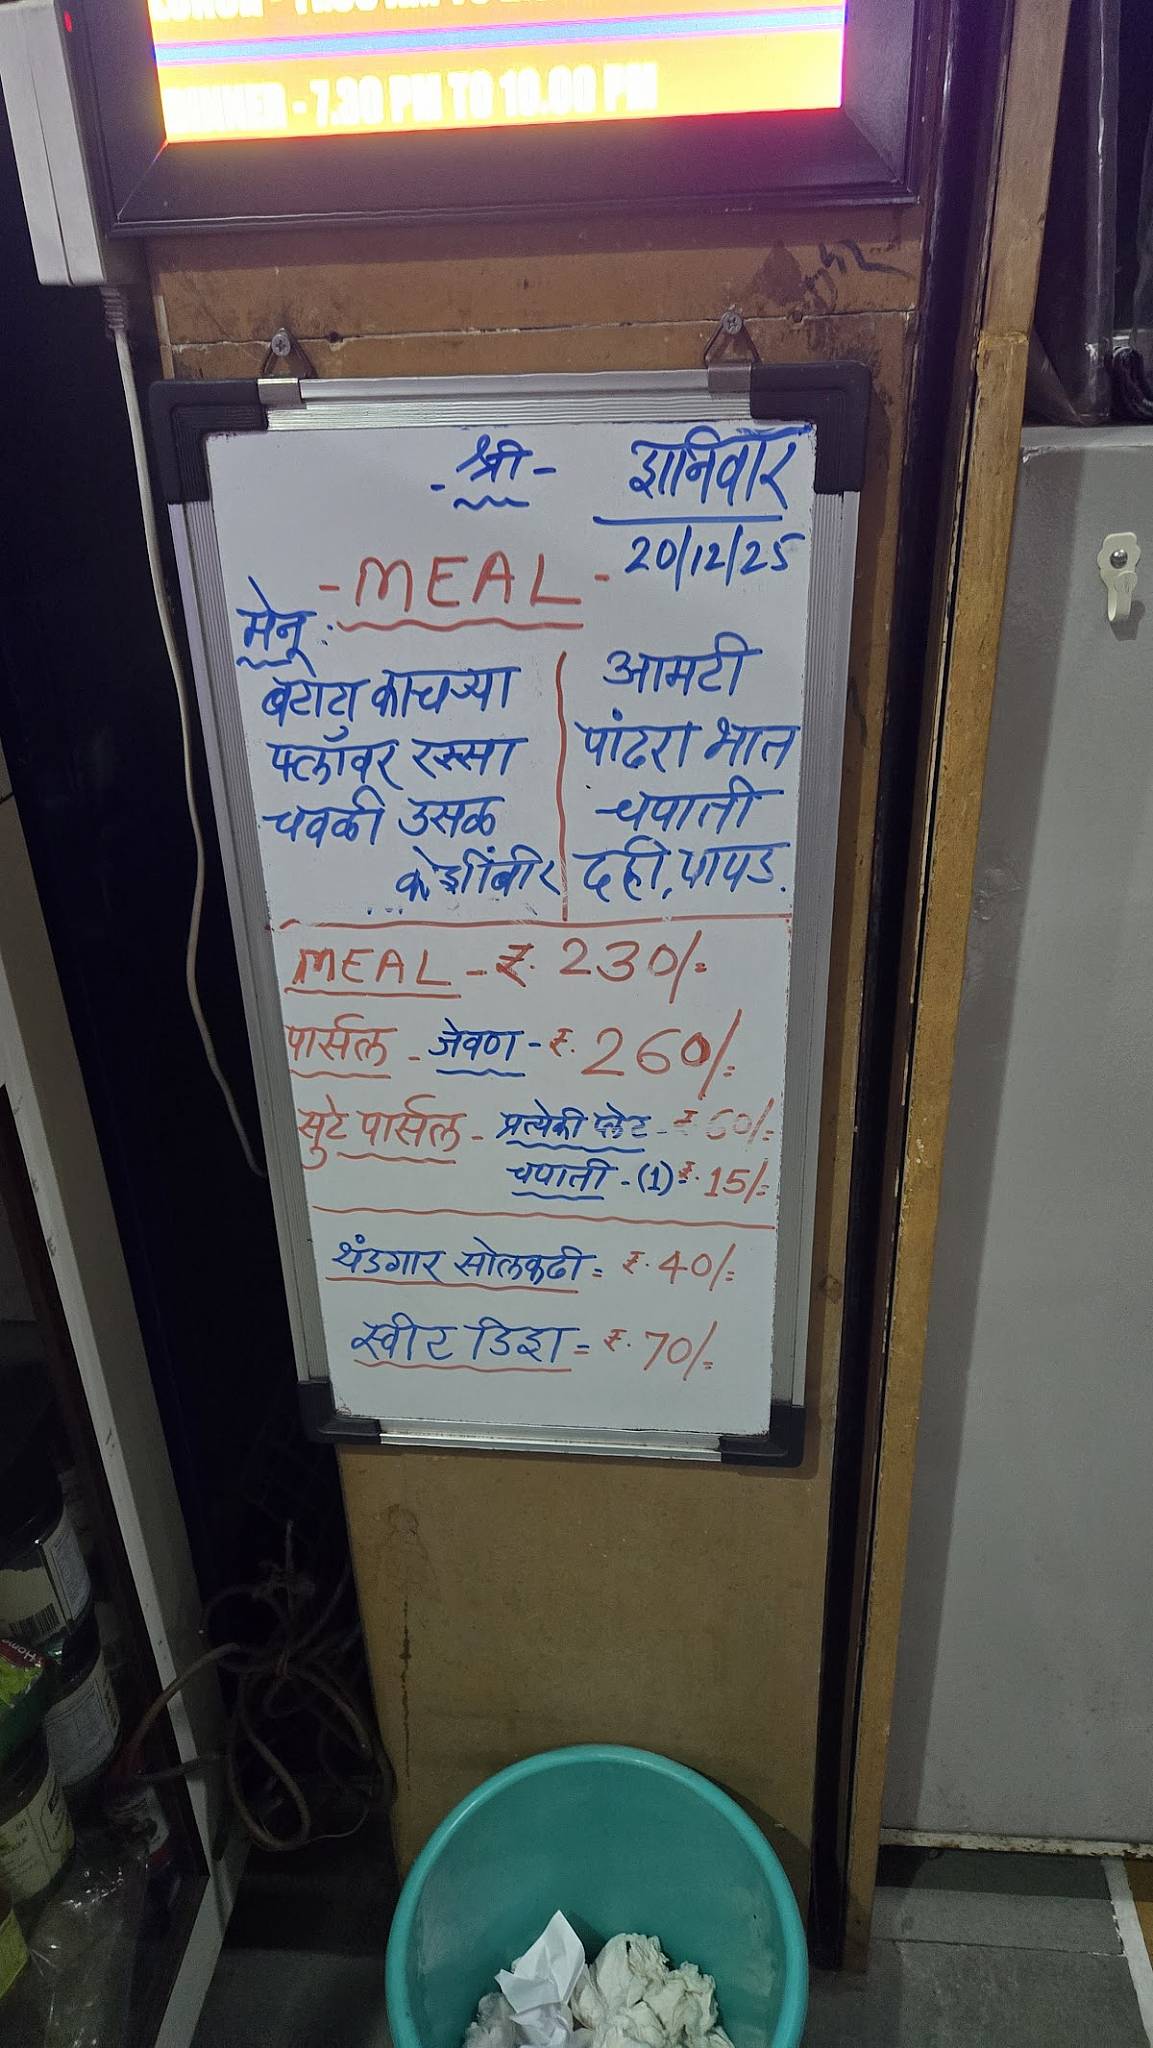 DINNER - 7.30 PM TO 10.00 PM
- श्री -
शनिवार
20/12/25
- MEAL -
मेनू :
बटाटा काचऱ्या
फ्लॉवर रस्सा
चवळी उसळ
कोशींबीर
आमटी
पांढरा भात
चपाती
दही, पापड.
MEAL - ₹. 230/-
पार्सल - जेवण - ₹. 260/-
सुटे पार्सल - प्रत्येकी प्लेट - ₹ 60/-
चपाती - (1) = ₹. 15/-
थंडगार सोलकढी = ₹. 40/-
स्वीट डिश = ₹. 70/-